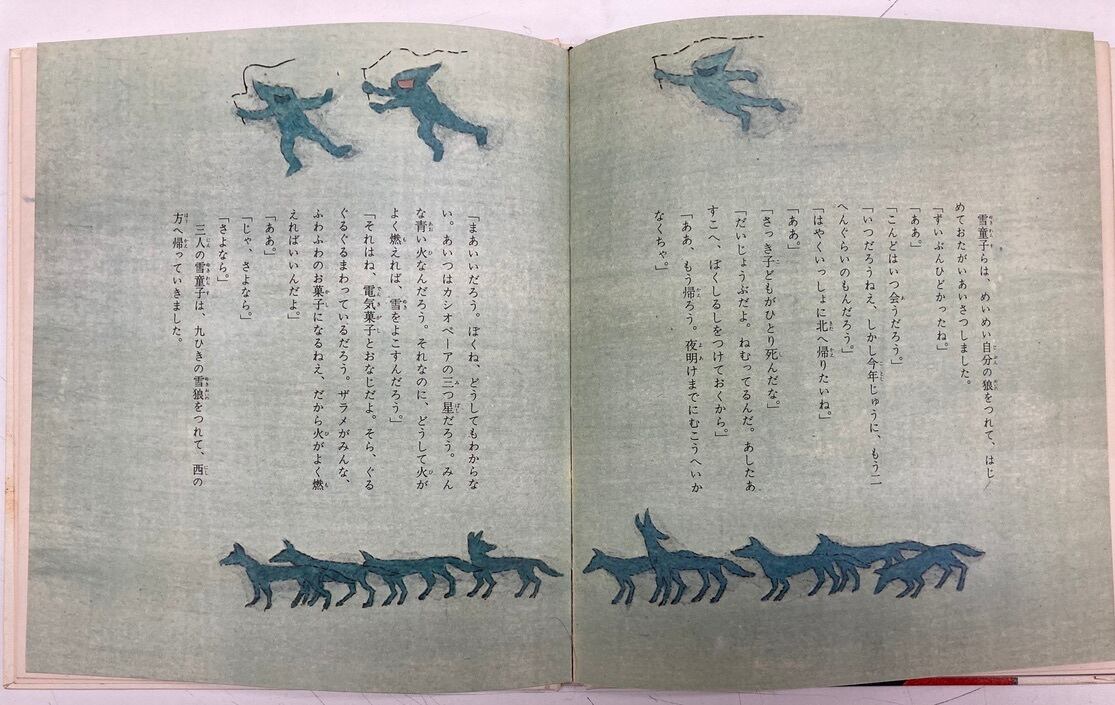 雪童子らは、めいめい自分の狼をつれて、はじ
めておたがいあいさつしました。
「ずいぶんひどかったね。」
「ああ。」
「こんどはいつ会うだろう。」
「いつだろうねえ、しかし今年じゅうに、もう二
へんぐらいのもんだろう。」
「はやくいっしょに北へ帰りたいね。」
「ああ。」
「さっき子どもがひとり死んだな。」
「だいじょうぶだよ。ねむってるんだ。あしたあ
すこへ、ぼくしるしをつけておくから。」
「ああ、もう帰ろう。夜明けまでにむこうへいか
なくちゃ。」
「まあいいだろう。ぼくね、どうしてもわからな
い。あいつはカシオペーアの三つ星だろう。みん
な青い火なんだろう。それなのに、どうして火が
よく燃えれば、雪をよこすんだろう。」
「それはね、電気菓子とおなじだよ。そら、ぐる
ぐるぐるまわっているだろう。ザラメがみんな、
ふわふわのお菓子になるねえ、だから火がよく燃
えればいいんだよ。」
「ああ。」
「じゃ、さよなら。」
「さよなら。」
三人の雪童子は、九ひきの雪狼をつれて、西の
方へ帰っていきました。